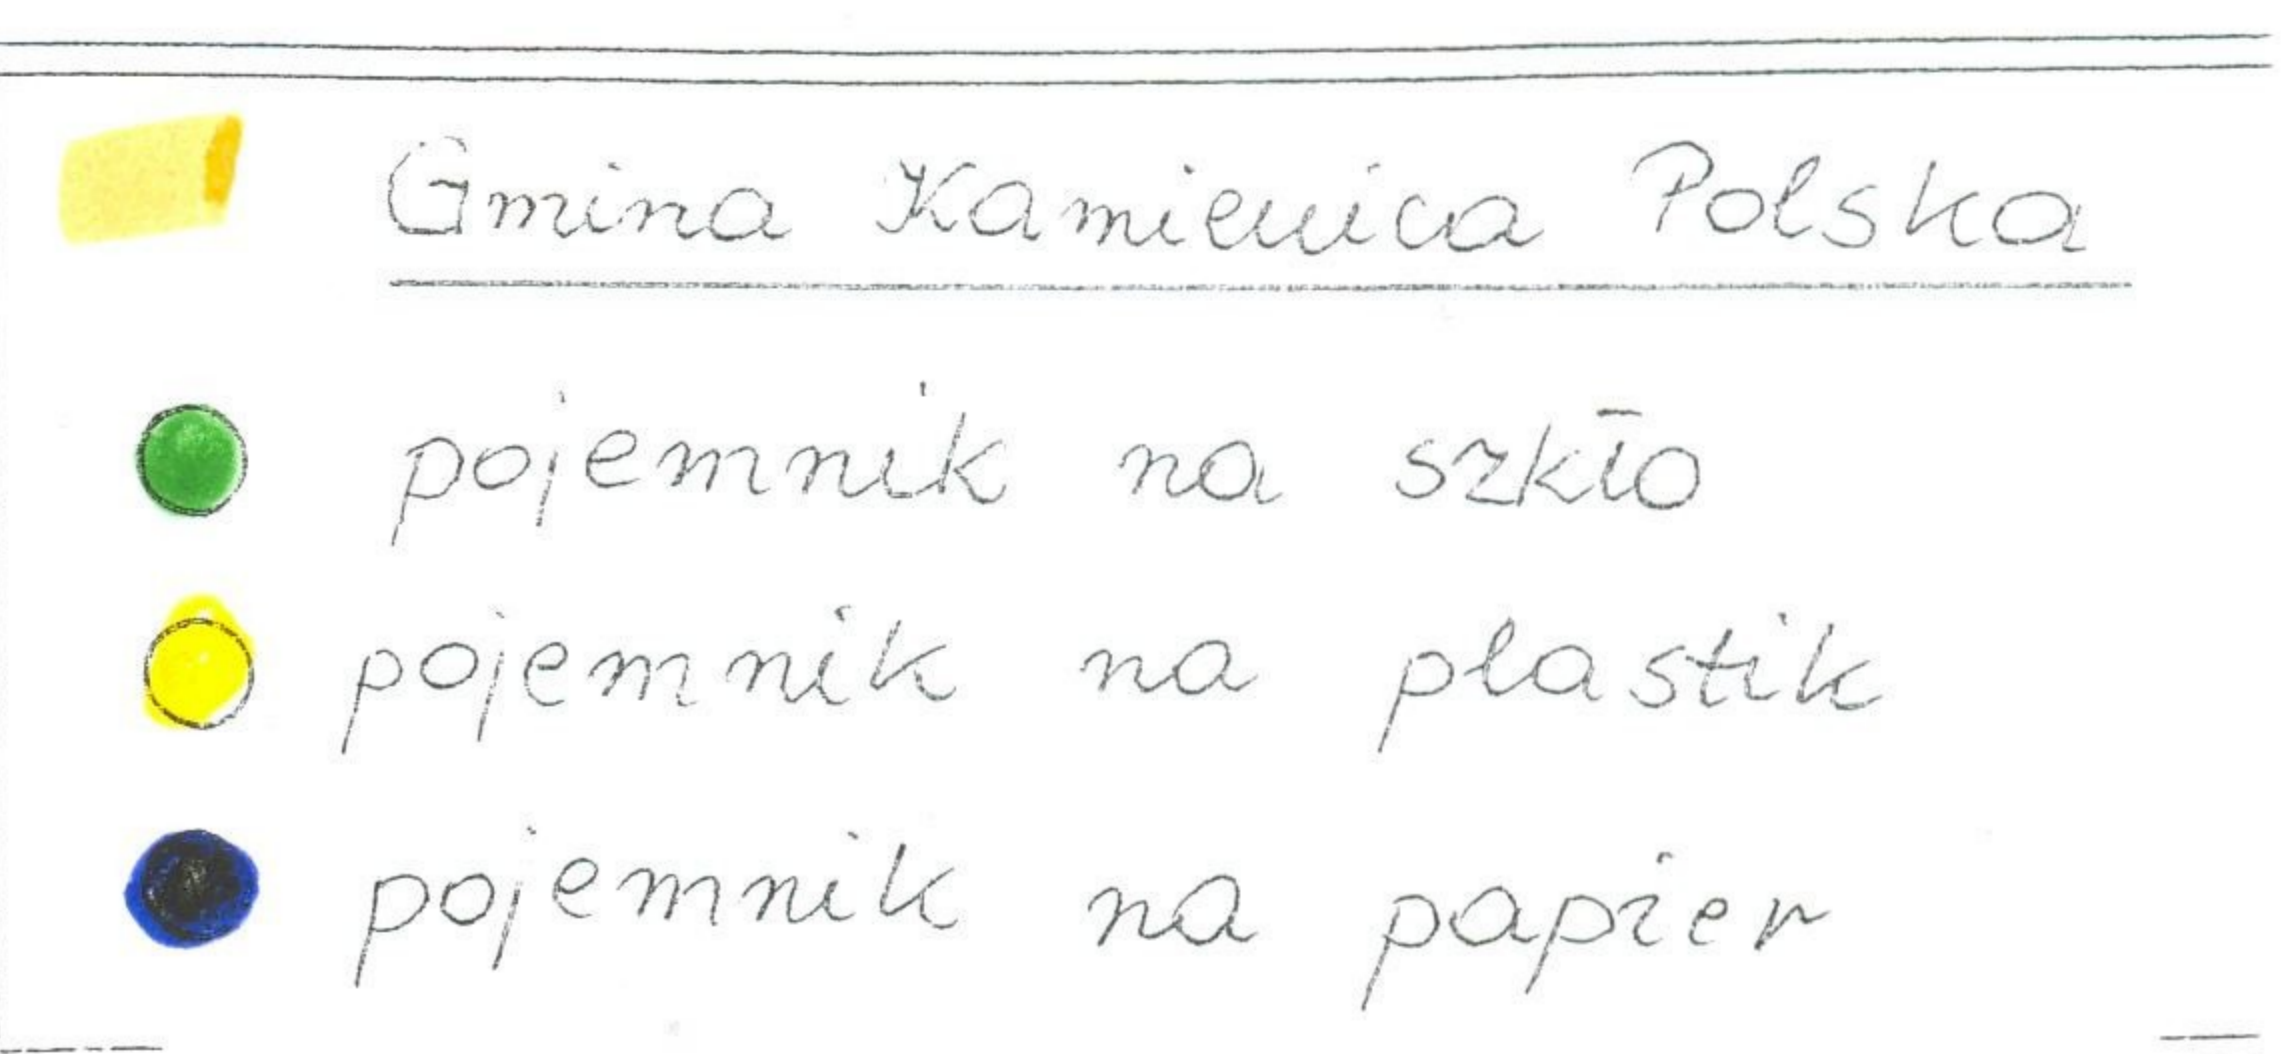 Gmina Kamienica Polska
pojemnik na szkło
pojemnik na plastik
pojemnik na papier